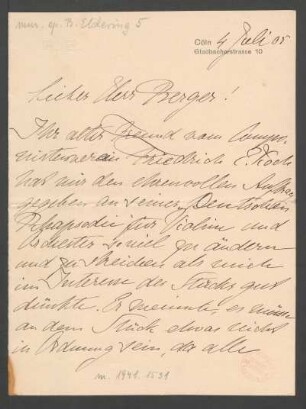 mus. ep. B. Eldering 5
Cöln 4 Juli 05
Gladbacherstrasse 10
Lieber Herr Berger!
Ihr alter Freund vom Compo-
nistenverein Friedrich E. Koch
hat mir den ehrenvollen Auftrag
gegeben an seiner Deutschen
Rhapsodie für Violine und
Orchester soviel zu ändern
und zu streichen als mich
im Interesse des Stücks gut
dünkte. Er meinte, es müsse
an dem Stück etwas nicht
in Ordnung sein, da alle
m. 1941.1531